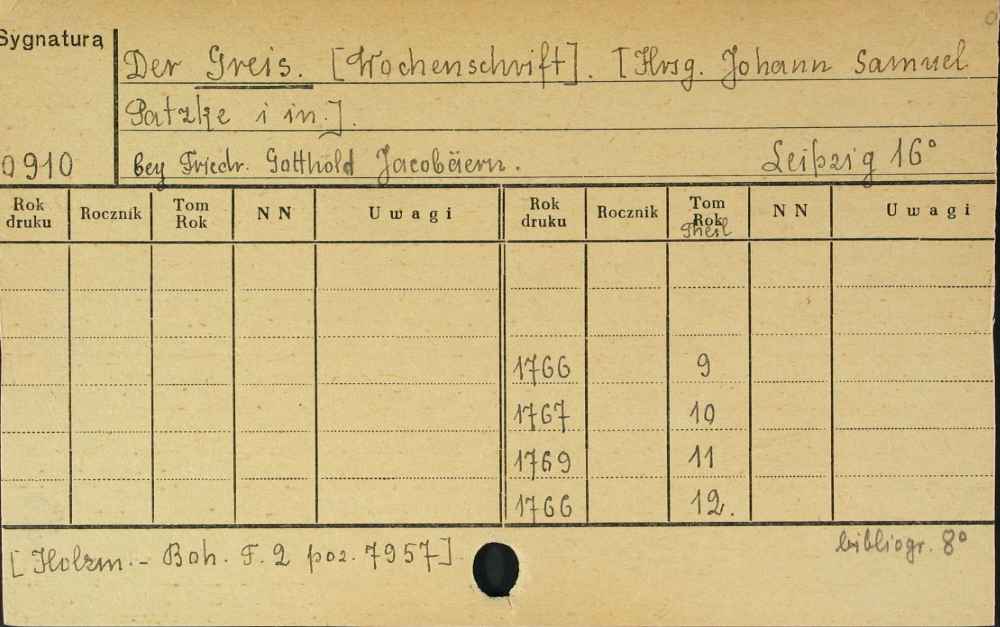 Sygnatura
Der Greis. [Wochenschrift]. [Hrsg. Johann Samuel
Patzke i in.].
0910 bey Friedr. Gotthold Jacobäern. Leipzig 16°
Rok druku Rocznik Tom Rok NN Uwagi Rok druku Rocznik Tom Rok Theil NN Uwagi
1766 9
1767 10
1769 11
1766 12.
[Holzm. - Boh. T. 2 poz. 7957]. bibliogr. 8°